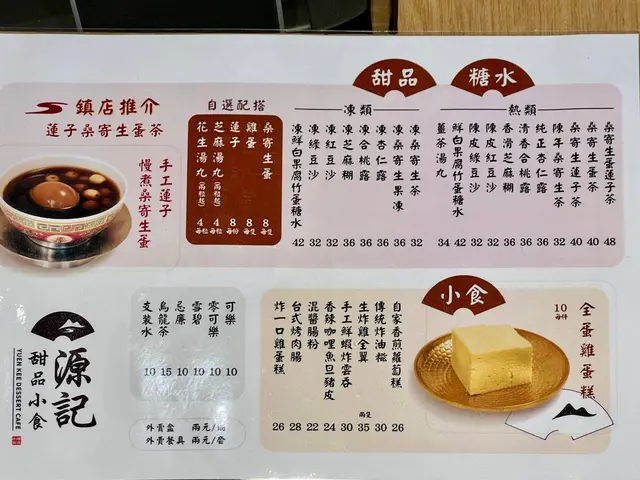 甜品
糖水
熱類
桑寄生蛋蓮子茶 48
桑寄生蛋茶 40
桑寄生蓮子茶 40
陳年桑寄生茶 32
純正杏仁露 36
清香合桃露 36
香滑芝麻糊 36
陳皮紅豆沙 32
陳皮綠豆沙 32
鮮白果腐竹蛋糖水 42
薑茶湯丸 34
凍類
凍桑寄生茶 32
凍桑寄生果凍 36
凍杏仁露 36
凍合桃露 36
凍芝麻糊 36
凍紅豆沙 32
凍綠豆沙 32
凍鮮白果腐竹蛋糖水 42
自選配搭
桑寄生蛋 8 每隻
雞蛋 8 每隻
蓮子 8 每份
芝麻湯丸(兩粒起) 4 每粒
花生湯丸(兩粒起) 4 每粒
鎮店推介
蓮子桑寄生蛋茶
手工蓮子
慢煮桑寄生蛋
小食
全蛋雞蛋糕
10 每件
自家香煎蘿蔔糕 26
傳統炸油糍 30
生炸雞全翼 兩隻 35
手工鮮蝦炸雲吞 30
香辣咖喱魚旦豬皮 24
混醬腸粉 22
台式烤肉腸 28
炸一口雞蛋糕 26
可樂 10
零可樂 10
雪碧 10
忌廉 10
烏龍茶 15
支裝水 10
外賣盒 兩元/個
外賣餐具 兩元/套
源記
甜品小食
YUEN KEE DESSERT CAFE